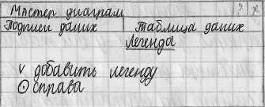 Мастер диаграм ? X
Подписи даних Таблица даних
Легенда
v добавить легенду
справа